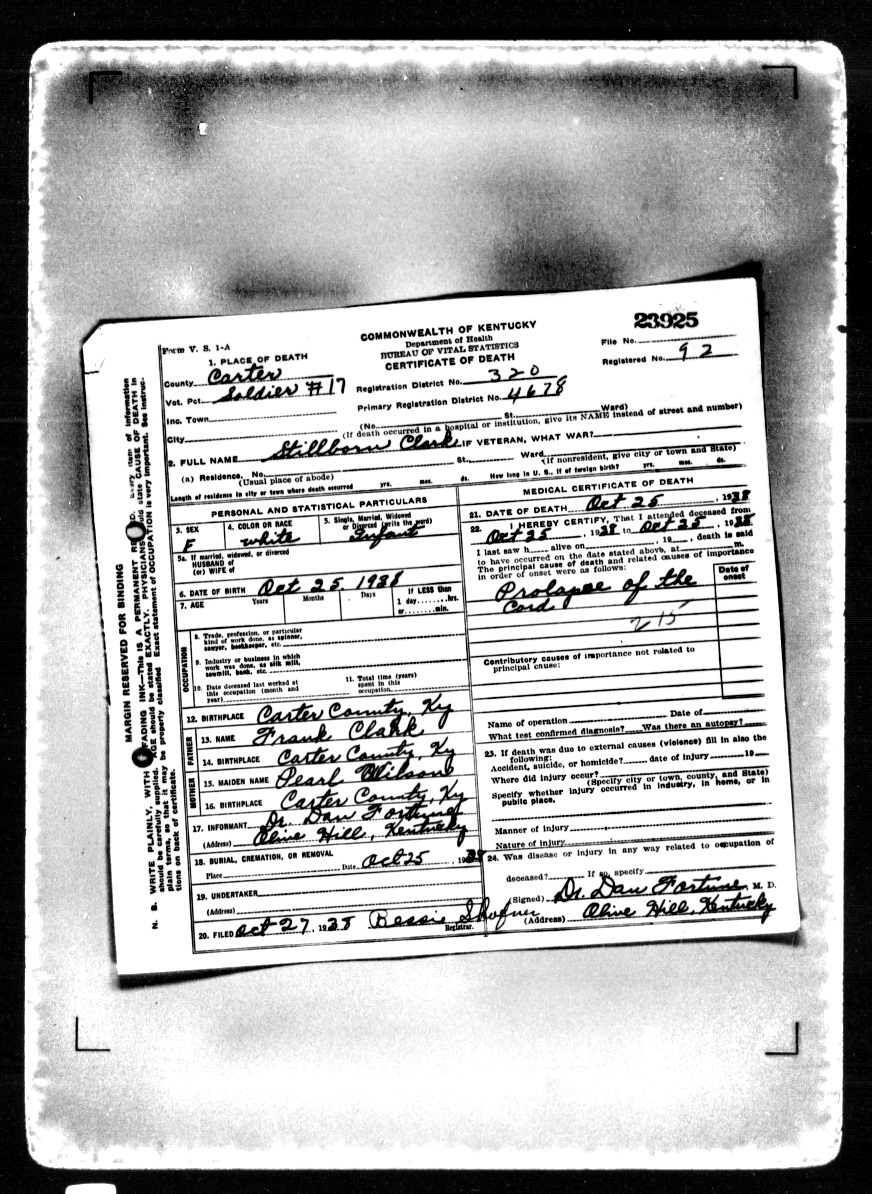 23925
Form V. S. 1-A
COMMONWEALTH OF KENTUCKY
Department of Health
BUREAU OF VITAL STATISTICS
CERTIFICATE OF DEATH
File No.
Registered No. 92
1. PLACE OF DEATH
County Carter
Vot. Pct. Soldier #17
Inc. Town
City
Registration District No. 320
Primary Registration District No. 4678
(No. St. Ward)
(If death occurred in a hospital or institution, give its NAME instead of street and number)
2. FULL NAME Stillborn Clark IF VETERAN, WHAT WAR?
(a) Residence. No. St., Ward.
(Usual place of abode) (If nonresident, give city or town and State)
Length of residence in city or town where death occurred yrs. mos. ds. How long in U. S., if of foreign birth? yrs. mos. ds.
PERSONAL AND STATISTICAL PARTICULARS
3. SEX
F
4. COLOR OR RACE
white
5. Single, Married, Widowed
or Divorced (write the word)
Infant
5a. If married, widowed, or divorced
HUSBAND of
(or) WIFE of
6. DATE OF BIRTH Oct 25. 1938
7. AGE Years Months Days If LESS than
1 day ........hrs.
or ........min.
OCCUPATION
8. Trade, profession, or particular
kind of work done, as spinner,
sawyer, bookkeeper, etc.
9. Industry or business in which
work was done, as silk mill,
sawmill, bank, etc.
10. Date deceased last worked at
this occupation (month and
year)
11. Total time (years)
spent in this
occupation
12. BIRTHPLACE Carter County, Ky
FATHER
13. NAME Frank Clark
14. BIRTHPLACE Carter County, Ky
MOTHER
15. MAIDEN NAME Pearl Wilson
16. BIRTHPLACE Carter County, Ky
17. INFORMANT Dr. Dan Fortune
(Address) Olive Hill, Kentucky
18. BURIAL, CREMATION, OR REMOVAL
Place Date Oct 25, 1938
19. UNDERTAKER
(Address)
20. FILED Oct 27, 1938 Bessie Shafner
Registrar.
MEDICAL CERTIFICATE OF DEATH
21. DATE OF DEATH Oct 25, 1938
22. I HEREBY CERTIFY, That I attended deceased from
Oct 25, 1938 to Oct 25, 1938
I last saw h alive on , 19 , death is said
to have occurred on the date stated above, at m.
The principal cause of death and related causes of importance
in order of onset were as follows:
Date of
onset
Prolapse of the
Cord
215
Contributory causes of importance not related to
principal cause:
Name of operation Date of
What test confirmed diagnosis? Was there an autopsy?
23. If death was due to external causes (violence) fill in also the
following:
Accident, suicide, or homicide? date of injury 19
Where did injury occur?
(Specify city or town, county, and State)
Specify whether injury occurred in industry, in home, or in
public place.
Manner of injury
Nature of injury
24. Was disease or injury in any way related to occupation of
deceased? If so, specify
(Signed) Dr. Dan Fortune, M. D.
(Address) Olive Hill, Kentucky
MARGIN RESERVED FOR BINDING
N. B. WRITE PLAINLY, WITH FADING INK—This IS A PERMANENT Every item of information
should be carefully supplied. AGE should be stated EXACTLY. PHYSICIANS state CAUSE OF DEATH in
plain terms, so that it may be properly classified. Exact statement of OCCUPATION is very important. See instruc-
tions on back of certificate.